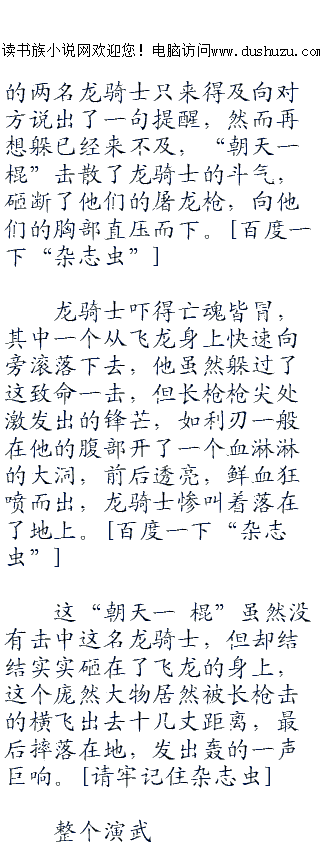 读书族小说网欢迎您！电脑访问www.dushuzu.com
的两名龙骑士只来得及向对
方说出了一句提醒，然而再
想躲已经来不及，“朝天一
棍”击散了龙骑士的斗气，
砸断了他们的屠龙枪，向他
们的胸部直压而下。[百度一
下“杂志虫”]
龙骑士吓得亡魂皆冒，
其中一个从飞龙身上快速向
旁滚落下去，他虽然躲过了
这致命一击，但长枪枪尖处
激发出的锋芒，如利刃一般
在他的腹部开了一个血淋淋
的大洞，前后透亮，鲜血狂
喷而出，龙骑士惨叫着落在
了地上。[百度一下“杂志
虫”]
这“朝天一 棍”虽然没
有击中这名龙骑士，但却结
结实实砸在了飞龙的身上，
这个庞然大物居然被长枪击
的横飞出去十几丈距离，最
后摔落在地，发出轰的一声
巨响。[请牢记住杂志虫]
整个演武